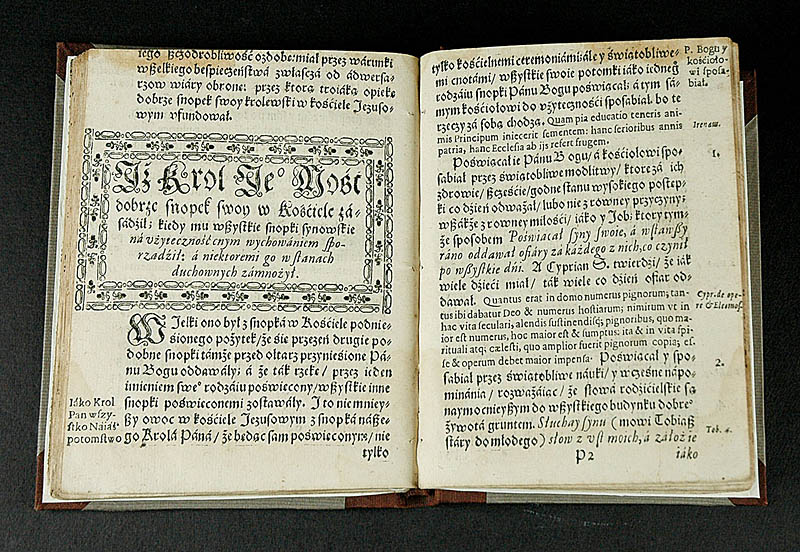 iego szczodrobliwość ozdobę: miał przez warunki
wszelkiego bespieczeństwá zwłaszczá od adwersa-
rzow wiáry obronę: przez ktorą troiáką opiekę
dobrze snopek swoy krolewski w kościele Jezuso-
wym vfundował.
Jż Krol Je° Mość
dobrze snopek swoy w Kościele zá-
sádził; kiedy mu wszystkie snopki synowskie
ná vżytecznośćcnym wychowániem spo-
rządził: á niektoremi go w stanach
duchownych zámnożył.
Wielki ono był z snopká w Kościele podnie-
sionego pożytek/ że się przezeń drugie po-
dobne snopki támże przed ołtarz przyniesione Pá-
nu Bogu oddawáły; á że ták rzekę/ przez ieden
imieniem swe° rodzáiu poświęcony/ wszystkie inne
snopki poświęconemi zostawáły. J to nie mniey-
szy owoc w kościele Jezusowym z snopká násze-
go Krolá Páná/ że będąc sam poświęconym/ nie
tylko
Iáko Krol
Pan wszy-
stko Náiaś.
potomstwo
tylko kościelnemi ceremoniámi ále y świątobliwe-
mi cnotámi/ wszystkie swoie potomki iáko iedneg°
rodzáiu snopki Pánu Bogu poświęcał: á tym sá-
mym kościołowi do vżyteczności sposabiał. bo te
rzeczy zá sobą chodzą. Quam pia educatio teneris ani-
mis Principum iniecerit sementem: hanc serioribus annis
patria, hanc Ecclesia ab ijs refert frugem.
Poświącał ie Pánu Bogu/ á kościołowi spo-
sabiał przez świątobliwe modlitwy/ ktore zá ich
zdrowie/ szczęście/ godne stanu wysokiego postęp-
ki co dzień odważał/ lubo nie z rowney przyczyny;
wszákże z rowney miłości/ iáko y Job; ktory tym-
że sposobem Poświącał syny swoie, á wstawszy
ráno oddawał ofiáry zá káżdego z nich, co czynił
po wszystkie dni. A Cyprian S. twierdzi/ że iák
wiele dzieći miał/ ták wiele co dzień ofiar od-
dawał. Quantus erat in domo numerus pignorum; tan-
tus ibi dabatur Deo & numerus hostiarum; nimirum vt in
hac vita seculari, alendis sustinendisq; pignoribus, quo ma-
ior est numerus, hoc maior est & sumptus: ita & in vita spi-
rituali atq; cælesti, quo amplior fuerit pignorum copia; es-
se & operum debet maior impensa. Poświącał y spo-
sabiał przez świątobliwe náuki/ y wczesne nápo-
minánia/ rozważáiąc/ że słowá rodźicielskie są
naymocnieyszym do wszystkiego budynku dobre°
żywotá gruntem. Słuchay synu (mowi Tobiasz
stáry do młodego) słow z vst moich, á záłoż ie
P2 iáko
P. Bogu y
kościoło-
wi sposa-
biał.
Irenæus.
1.
Cypr. de ope-
re & Eleemos.
2.
Tob. 4.